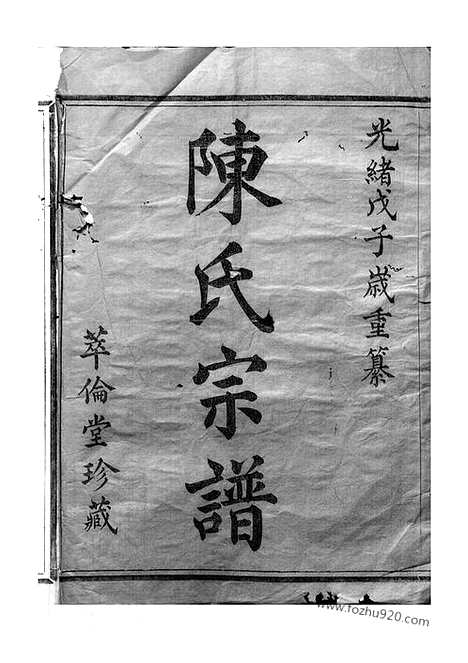 光緒戊子歲重纂
陳氏宗譜
萃倫堂珍藏
www.fozhu920.com